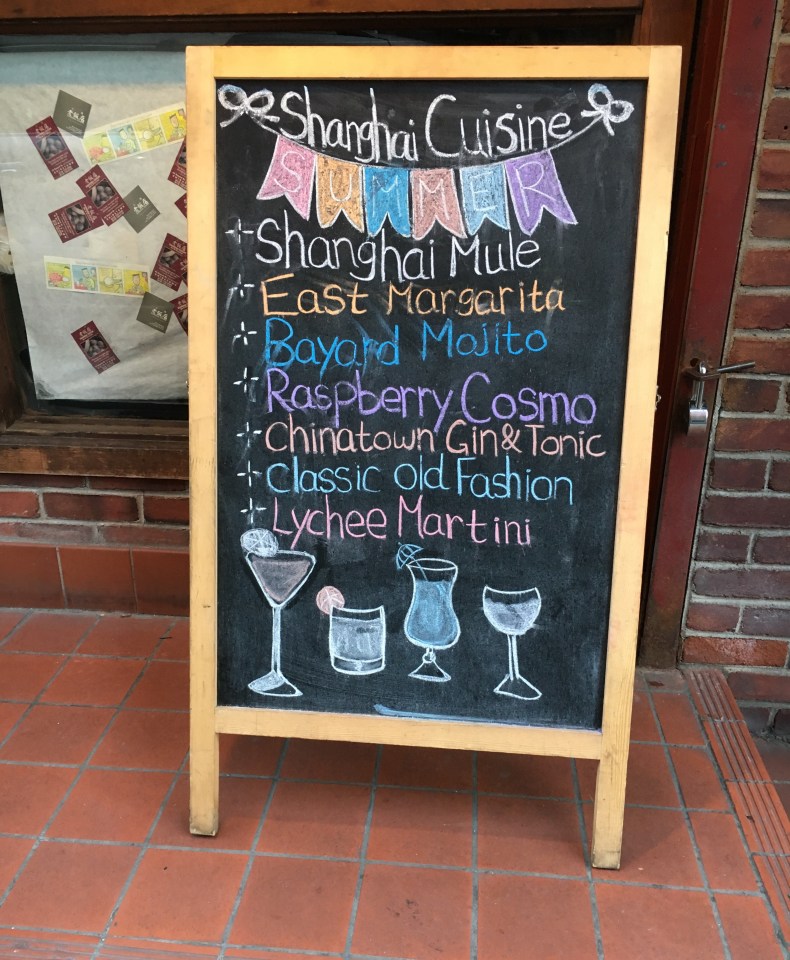 Shanghai Cuisine
SUMMER
Shanghai Mule
East Margarita
Bayard Mojito
Raspberry Cosmo
Chinatown Gin & Tonic
Classic Old Fashion
Lychee Martini